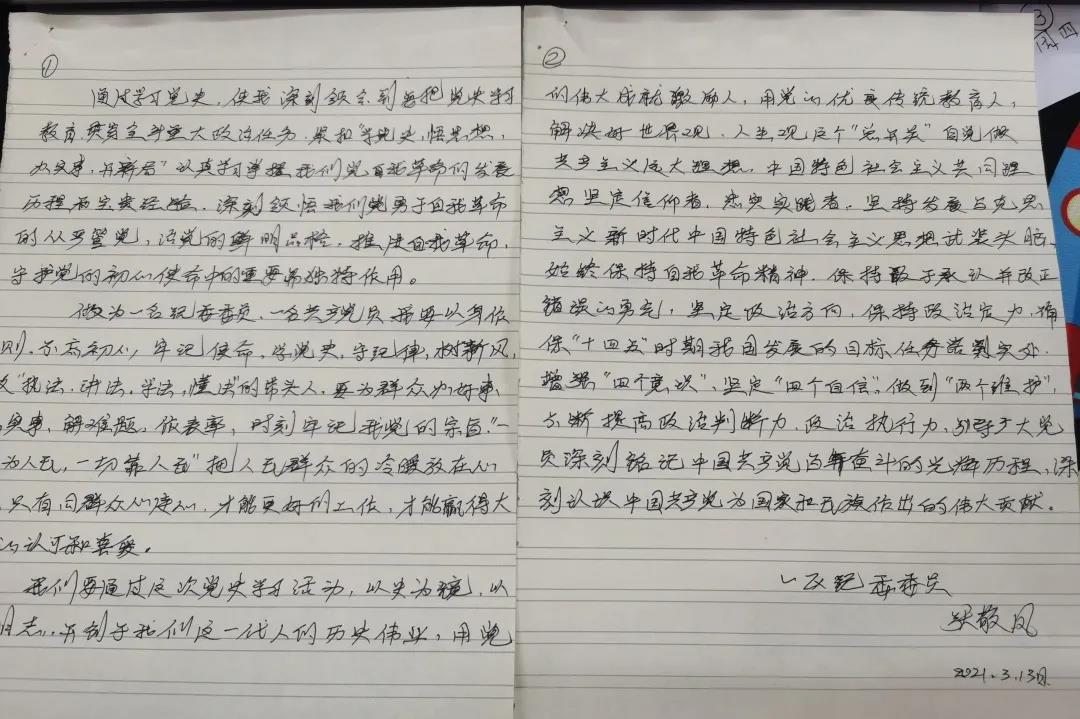 ①
通过学习党史，使我深刻领会到要把党史学习
教育贯当全年重大政治任务，聚和“学党史，悟思想，
办实事，开新局”认真学习掌握我们党自我革命的发展
历程和宝贵经验，深刻领悟我们党勇于自我革命
的从严管党，治党的鲜明品格，推进自我革命，
守护党的初心使命中的重要而独特作用。
做为一名纪委委员，一名共产党员需要以身作
则，不忘初心，牢记使命，学党史，守纪律，树新风，
“执法，讲法，学法，懂法”的带头人，要为群众办好事，
实事，解难题，做表率，时刻牢记我党的宗旨“一
为人民，一切靠人民”把人民群众的冷暖放在心
只有同群众心连心，才能更好的工作，才能赢得大
的认可和喜爱。
我们要通过这次党史学习活动，以史为镜，以
明志，开创于我们这一代人的历史伟业，用党
③
②
的伟大成就激励人，用党的优良传统教育人，
解决好世界观、人生观这个“总开关”自觉做
共产主义远大理想，中国特色社会主义共同理
想坚定信仰者，忠实实践者，坚持发展马克思
主义新时代中国特色社会主义思想武装头脑，
始终保持自我革命精神，保持敢于承认并改正
错误的勇气，坚定政治方向，保持政治定力，确
保“十四五”时期我国发展的目标任务落到实处，
增强“四个意识”，坚定“四个自信”，做到“两个维护”，
不断提高政治判断力，政治执行力，引导广大党
员深刻铭记中国共产党百年奋斗的光辉历程，深
刻认识中国共产党为国家和民族作出的伟大贡献。
纪委委员
敬凤
2021.3.13日